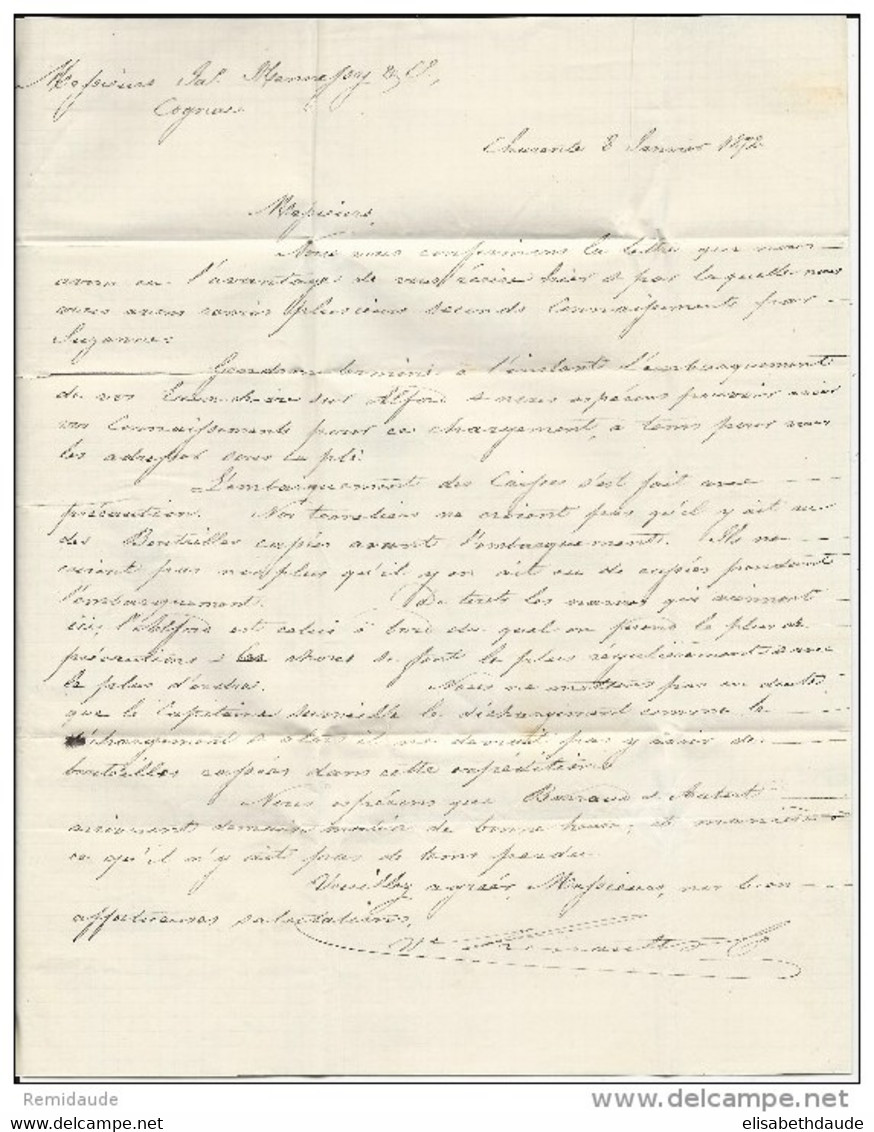 Messieurs Jas. Hennessy & Co,
Cognac
Charente 8 Janvier 1872
Messieurs,
Nous vous confirmons la lettre que nous
avons eu l'avantage de vous écrire hier & par laquelle nous
vous avons remis plusieurs seconds Connaissements par
Suzanne.
Gendron termine à l'instant l'embarquement
de vos sur Alford & nous espérons pouvoir avoir
vos Connaissements pour ce chargement, à tems pour vous
les adresser sous ce pli.
L'embarquement des Caisses s'est fait avec
précaution. Nos tonneliers ne croient pas qu'il y ait eu
des Bouteilles cassées avant l'embarquement. Ils ne
croient pas non plus qu'il y en ait eu de cassées pendant
l'embarquement. De tous les navires qui viennent
ici, l'Alford est celui à bord du quel on prend le plus de
précautions & les choses se font le plus régulièrement & avec
le plus d'ordre. Nous ne mettons pas en doute
que le Capitaine surveille le déchargement comme le
chargement & alors il ne devrait pas y avoir de
bouteilles cassées dans cette expédition.
Nous espérons que Barraud et Autert
arriveront demain matin de bonne heure, de manière à
ce qu'il n'y ait pas de tems perdu.
Veuillez agréer, Messieurs, nos bien
affectueuses salutations.
Ve
Remidaude
delcampe.net
www.delcampe.net
elisabethdaude